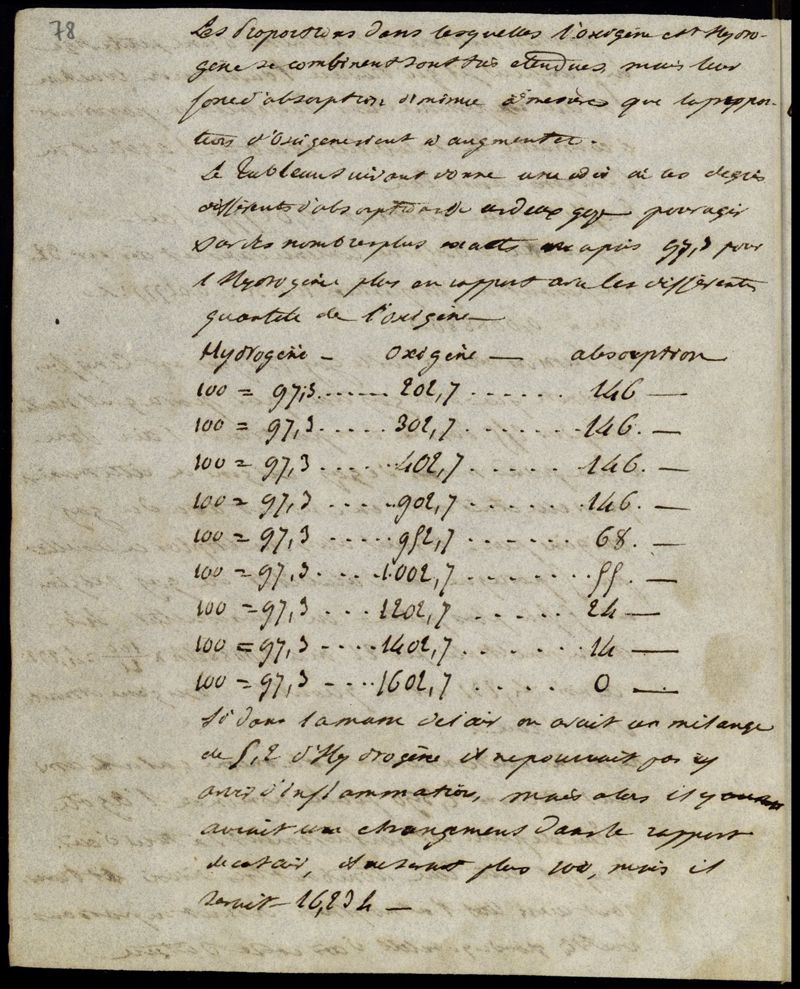 78
Les proportions dans lesquelles l'oxigène est Hydro-
gène se combinent sont très etendues, mais leur
force d'absorption diminue à mesures que la propor-
tion d'Oxigene vient à augmenter.
Le Tableau suivant donne une idée de ces degrés
différents d'absorption de ces deux gaz pour agir
sur des nombres plus exacts on a pris 97,3 pour
l'Hydrogène plus en rapport avec les différentes
quantité de l'oxigène —
Hydrogène — Oxigène — absorption
100 = 97,3 ...... 202,7 ...... 146 —
100 = 97,3 ..... 302,7 ....... 146. —
100 = 97,3 ..... 402,7 ...... 146. —
100 = 97,3 ..... 902,7 ...... 146. —
100 = 97,3 ..... 952,7 ....... 68. —
100 = 97,3 .... 1.002,7 ...... 55. —
100 = 97,3 ... 1202,7 ..... 24 —
100 = 97,3 .... 1402,7 ...... 14 —
100 = 97,3 .... 1602,7 ..... 0 —
Si dans la masse de l'air on avait un mélange
de 5,2 d'Hydrogène il ne pourrait pas y
avoir d'inflammation, mais alors il y
aurait un changement dans le rapport
de cet air, il ne serait plus 100, mais il
serait 16,234 —